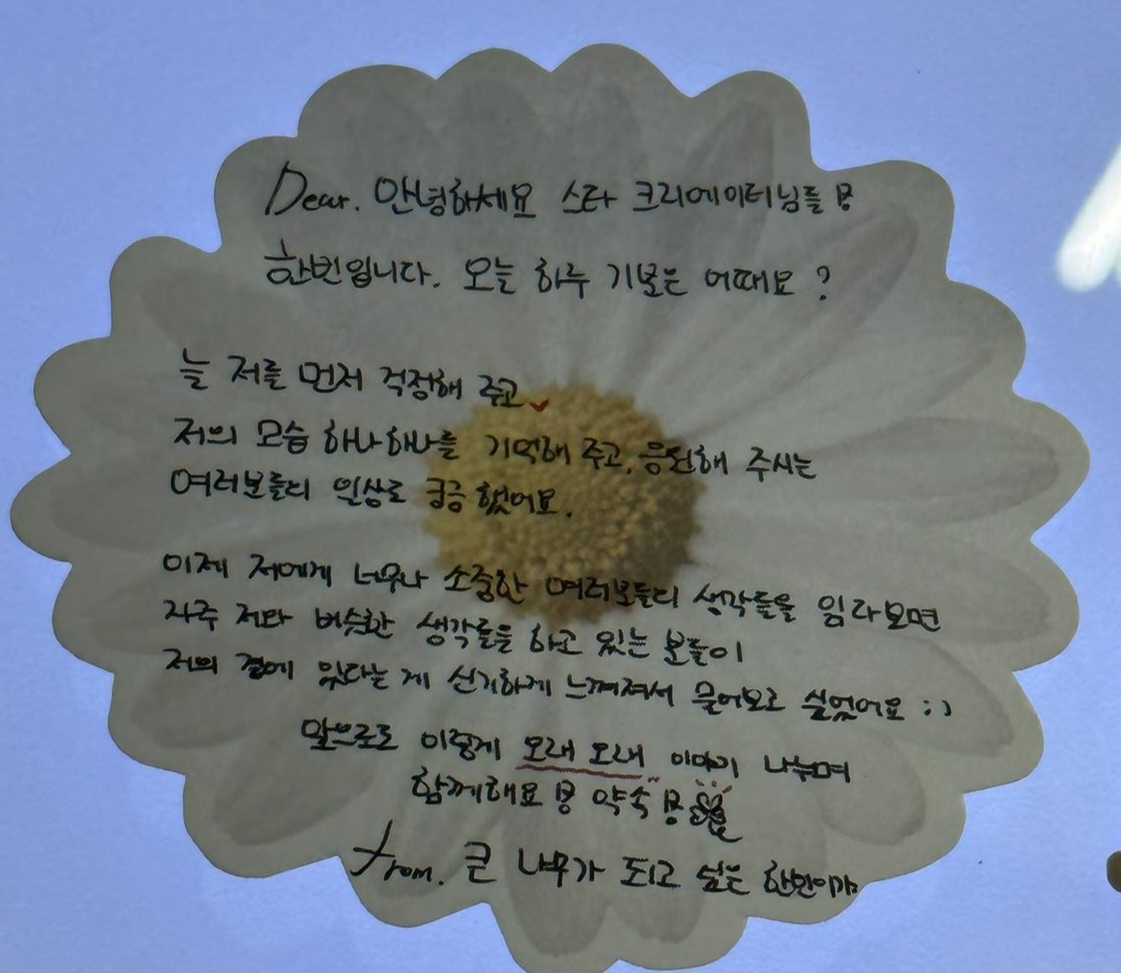 Dear. 안녕하세요 스타 크리에이터님들
한빈입니다. 오늘 하루 기분은 어때요?
늘 저를 먼저 걱정해 주고
저의 모습 하나하나를 기억해 주고, 응원해 주시는
여러분들의 일상도 궁금했어요.
이제 저에게 너무나 소중한 여러분들의 생각들을 읽다보면
자주 저와 비슷한 생각들을 하고 있는 분들이
저의 곁에 있다는 게 신기하게 느껴져서 물어보고 싶었어요 :)
앞으로도 이렇게 오래 오래 이야기 나누며
함께해요 약속
from. 큰 나무가 되고 싶은 한빈이가